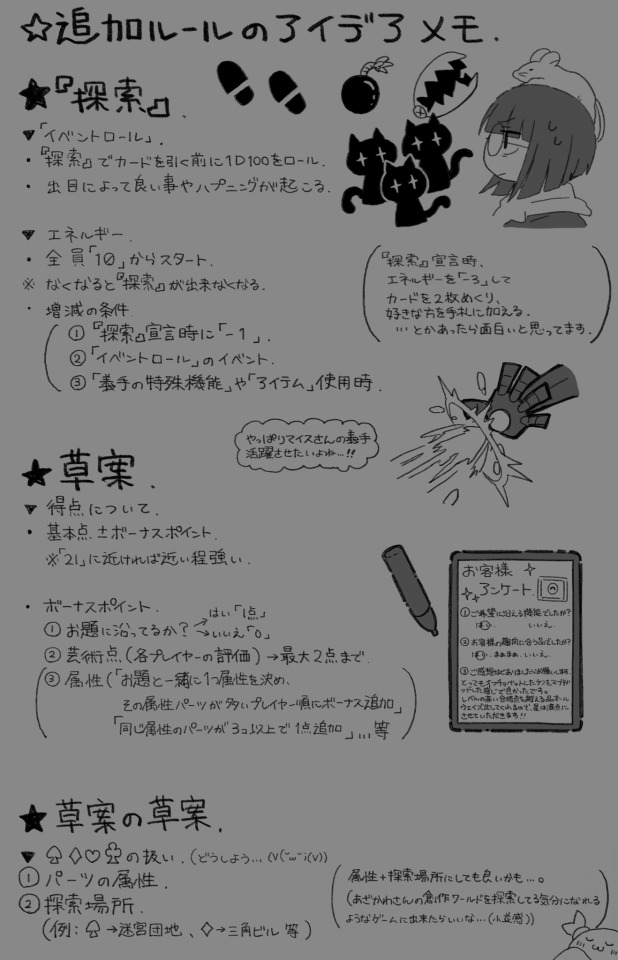 ☆追加ルールのアイデアメモ.
★『探索』.
▼「イベントロール」.
・『探索』でカードを引く前に1D100をロール.
・出目によって良い事やハプニングが起こる.
▼エネルギー.
・全員「10」からスタート.
※なくなると『探索』が出来なくなる.
・増減の条件.
①『探索』宣言時に「-1」.
②「イベントロール」のイベント.
③「義手の特殊機能」や「アイテム」使用時.
『探索』宣言時、
エネルギーを「-3」して
カードを2枚めくり、
好きな方を手札に加える.
…とかあったら面白いと思ってます.
やっぱりマイスさんの義手
活躍させたいよね…!!
★草案.
▼得点について.
・基本点±ボーナスポイント.
※「21」に近ければ近い程強い.
・ボーナスポイント.
①お題に沿ってるか?→はい「1点」
→いいえ「0」
②芸術点(各プレイヤーの評価)→最大2点まで.
③属性(「お題と一緒に1つ属性を決め、
その属性パーツが多いプレイヤー順にボーナス追加」
「同じ属性のパーツが3コ以上で1点追加」…等)
お客様
アンケート.
①ご希望に沿える機能でしたか?
はい. いいえ.
②お客様の趣向に合う品でしたか?
はい. まあまあ. いいえ.
③ご感想などありましたらお願いします
★草案の草案.
▼♤♢♡♧の扱い.(どうしよう…(V(˘ω˘)(V))
①パーツの属性.
②探索場所.
(例:♤→迷宮団地、♢→三角ビル 等)
属性+探索場所にしても良いかも…。
(あざかわさんの創作ワールドを探索してる気分になれる
ようなゲームに出来たらいいな…(小並感))